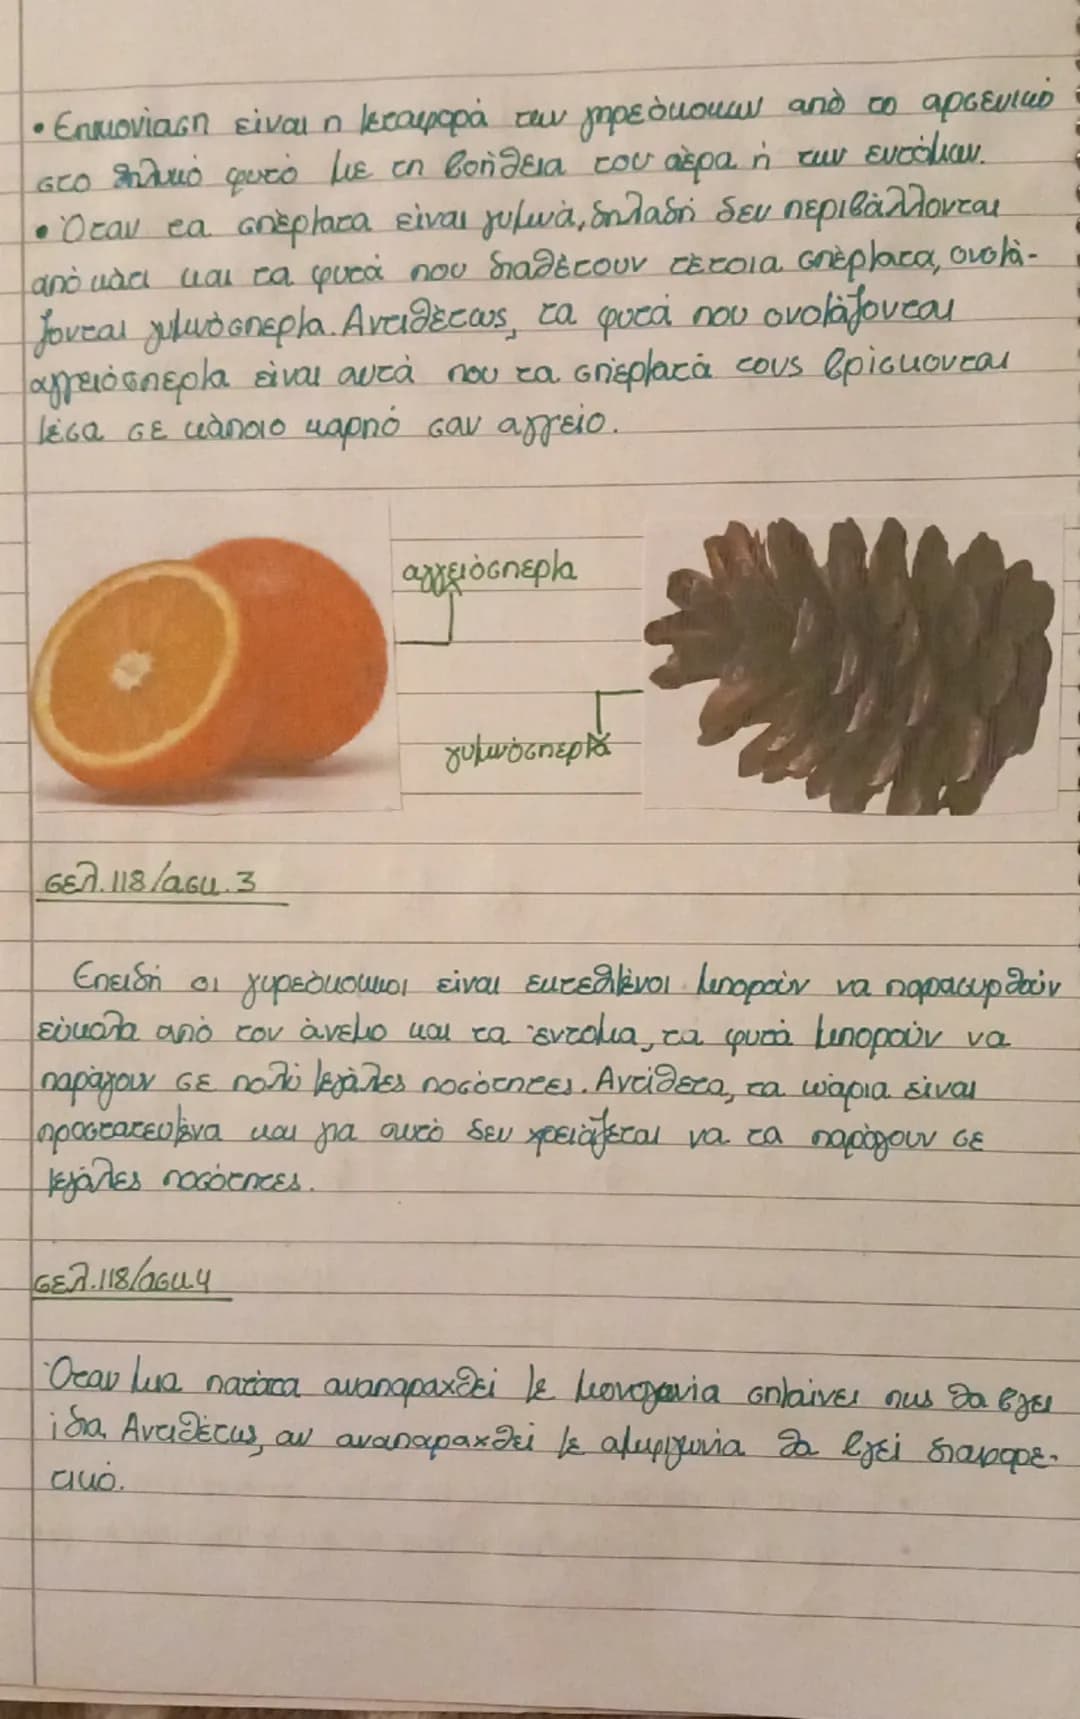 • Επικονίαση είναι η μεταφορά των γυρεόκοκκων από το αρσενικό
στο θηλυκό φυτό με τη βοήθεια του αέρα ή των εντόμων.
• Όταν τα σπέρματα είναι γυμνά, δηλαδή δεν περιβάλλονται
από κάτι και τα φυτά που διαθέτουν τέτοια σπέρματα, ονομά-
ζονται γυμνόσπερμα. Αντιθέτως, τα φυτά που ονομάζονται
αγγειόσπερμα είναι αυτά που τα σπέρματά τους βρίσκονται
μέσα σε κάποιο καρπό σαν αγγείο.
αγγειόσπερμα
γυμνόσπερμα
σελ. 118/ασκ. 3
Επειδή οι γυρεόκοκκοι είναι εκτεθιμένοι μπορούν να παρασυρθούν
εύκολα από τον άνεμο και τα έντομα, τα φυτά μπορούν να
παράγουν σε πολύ μεγάλες ποσότητες. Αντίθετα, τα ωάρια είναι
προστατευμένα και για αυτό δεν χρειάζεται να τα παράγουν σε
μεγάλες ποσότητες.
σελ. 118/ασκ. 4
Όταν μια πατάτα αναπαραχθεί με μονογονία σημαίνει πως θα βγει
ίδια. Αντιθέτως, αν αναπαραχθεί με αμφιγωνία θα βγεί διαφορε-
τικό.